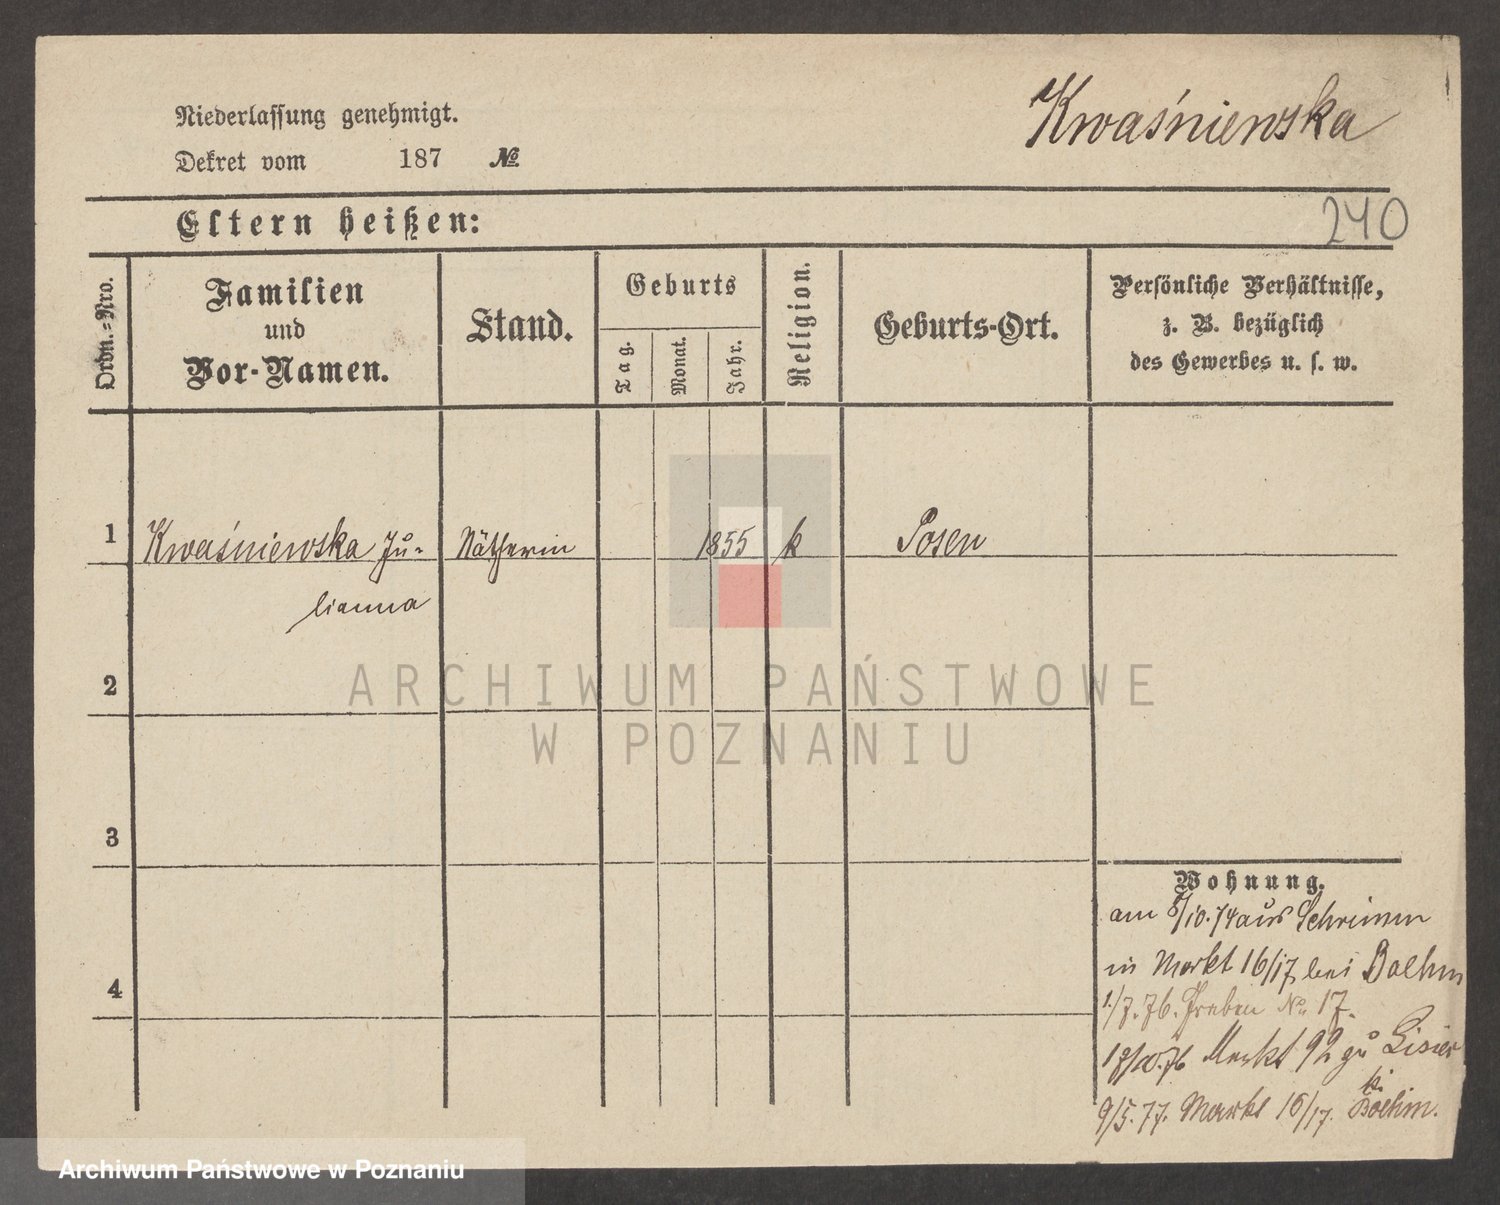 Kwaśniewska
Niederlassung genehmigt.
Dekret vom 187 №
240
Eltern heißen:
Ordn.-Nro.
Familien
und
Vor-Namen.
Stand.
Geburts
Tag.
Monat.
Jahr.
Religion.
Geburts-Ort.
Persönliche Verhältnisse,
z. B. bezüglich
des Gewerbes u. s. w.
1 Kwaśniewska Ju- Nätherin 1855 k Posen
lianna
2
3
4
Wohnung.
am 8/10.74 aus Schrimm
in Markt 16/17 bei Boehm
1/7.76. Graben No 17.
17/10.76 Markt 92 zu
9/5.77. Markt 16/17. b. Boehm.
ARCHIWUM PAŃSTWOWE
W POZNANIU
Archiwum Państwowe w Poznaniu